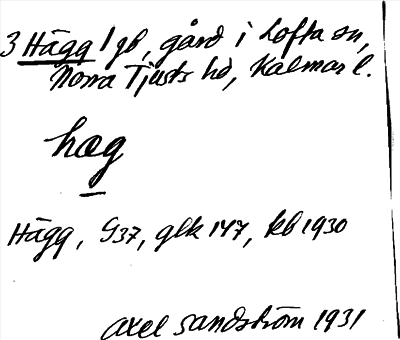 3 Hägg 1 gb, gård i Lofta sn,
Norra Tjusts hd, Kalmar l.
hæg
Hägg, G37, glk 147, kb 1930
Axel Sandström 1931